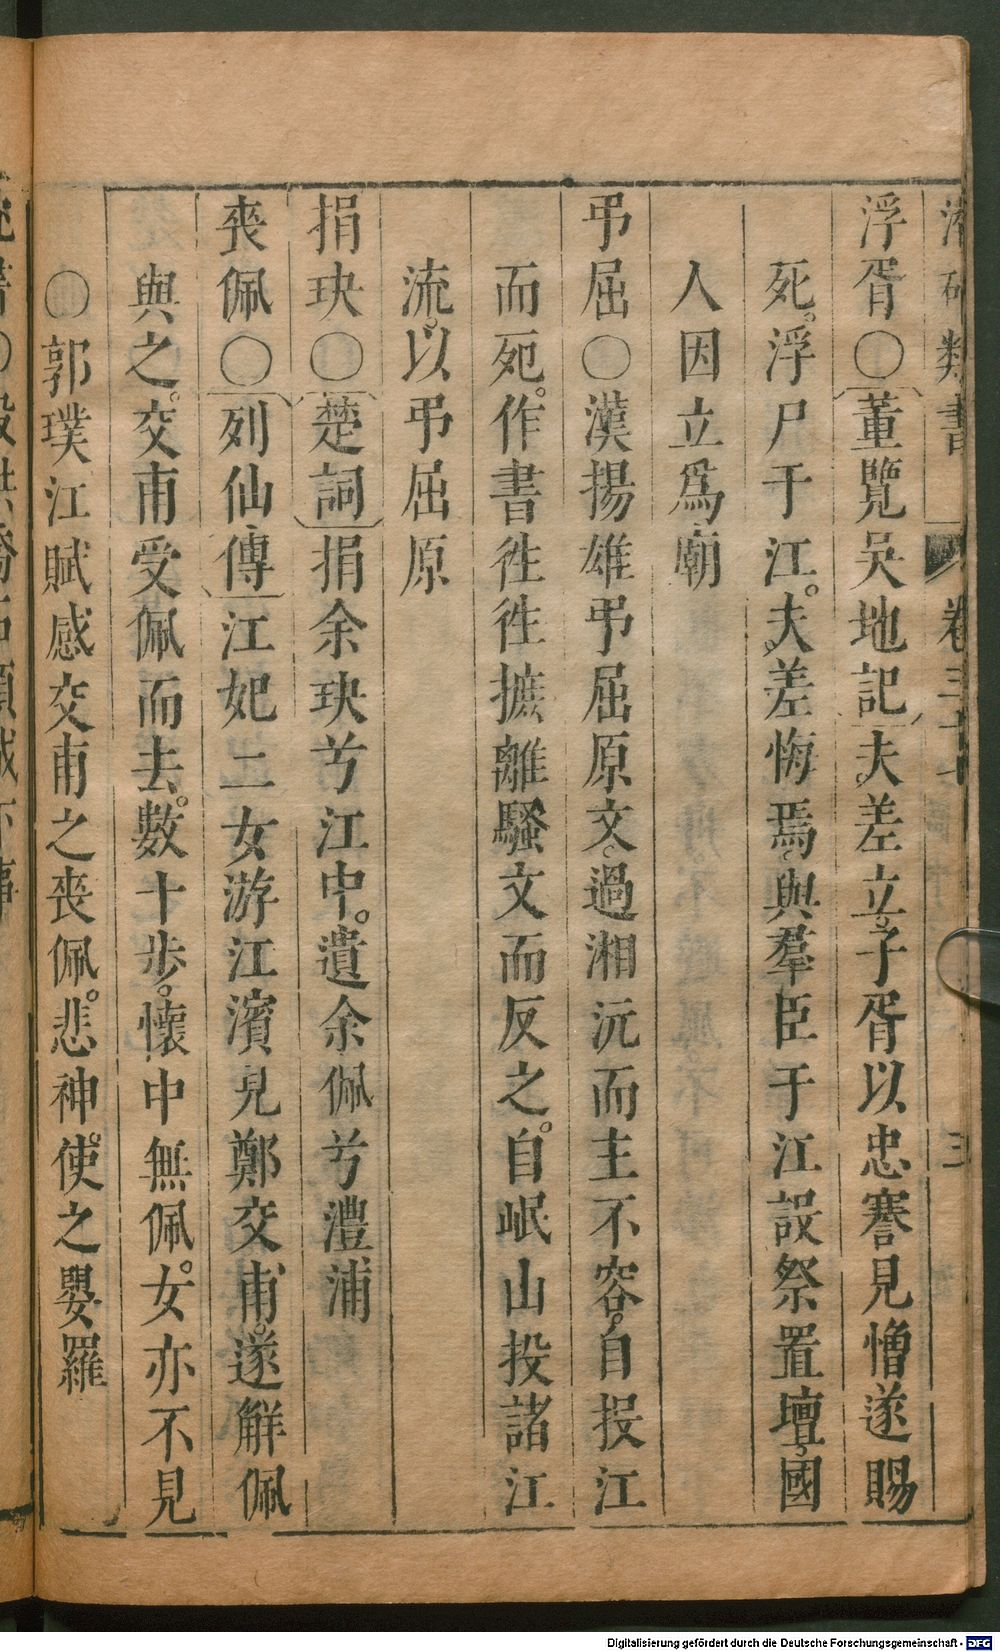 類書 卷三十七 三
浮胥〇董覽吳地記夫差立子胥以忠謇見憎遂賜
死。浮尸于江。夫差悔焉。與羣臣于江設祭置壇。國
人因立爲廟
弔屈〇漢揚雄弔屈原文。過湘沅而主不容。自投江
而死。作書徃徃摭離騷文而反之。自岷山投諸江
流。以弔屈原
捐玦〇楚詞捐余玦兮江中。遺余佩兮澧浦
喪佩〇列仙傳江妃二女游江濱見鄭交甫。遂解佩
與之。交甫受佩而去。數十步。懷中無佩。女亦不見
〇郭璞江賦感交甫之喪佩。悲神使之嬰羅
Digitalisierung gefördert durch die Deutsche Forschungsgemeinschaft - DFG